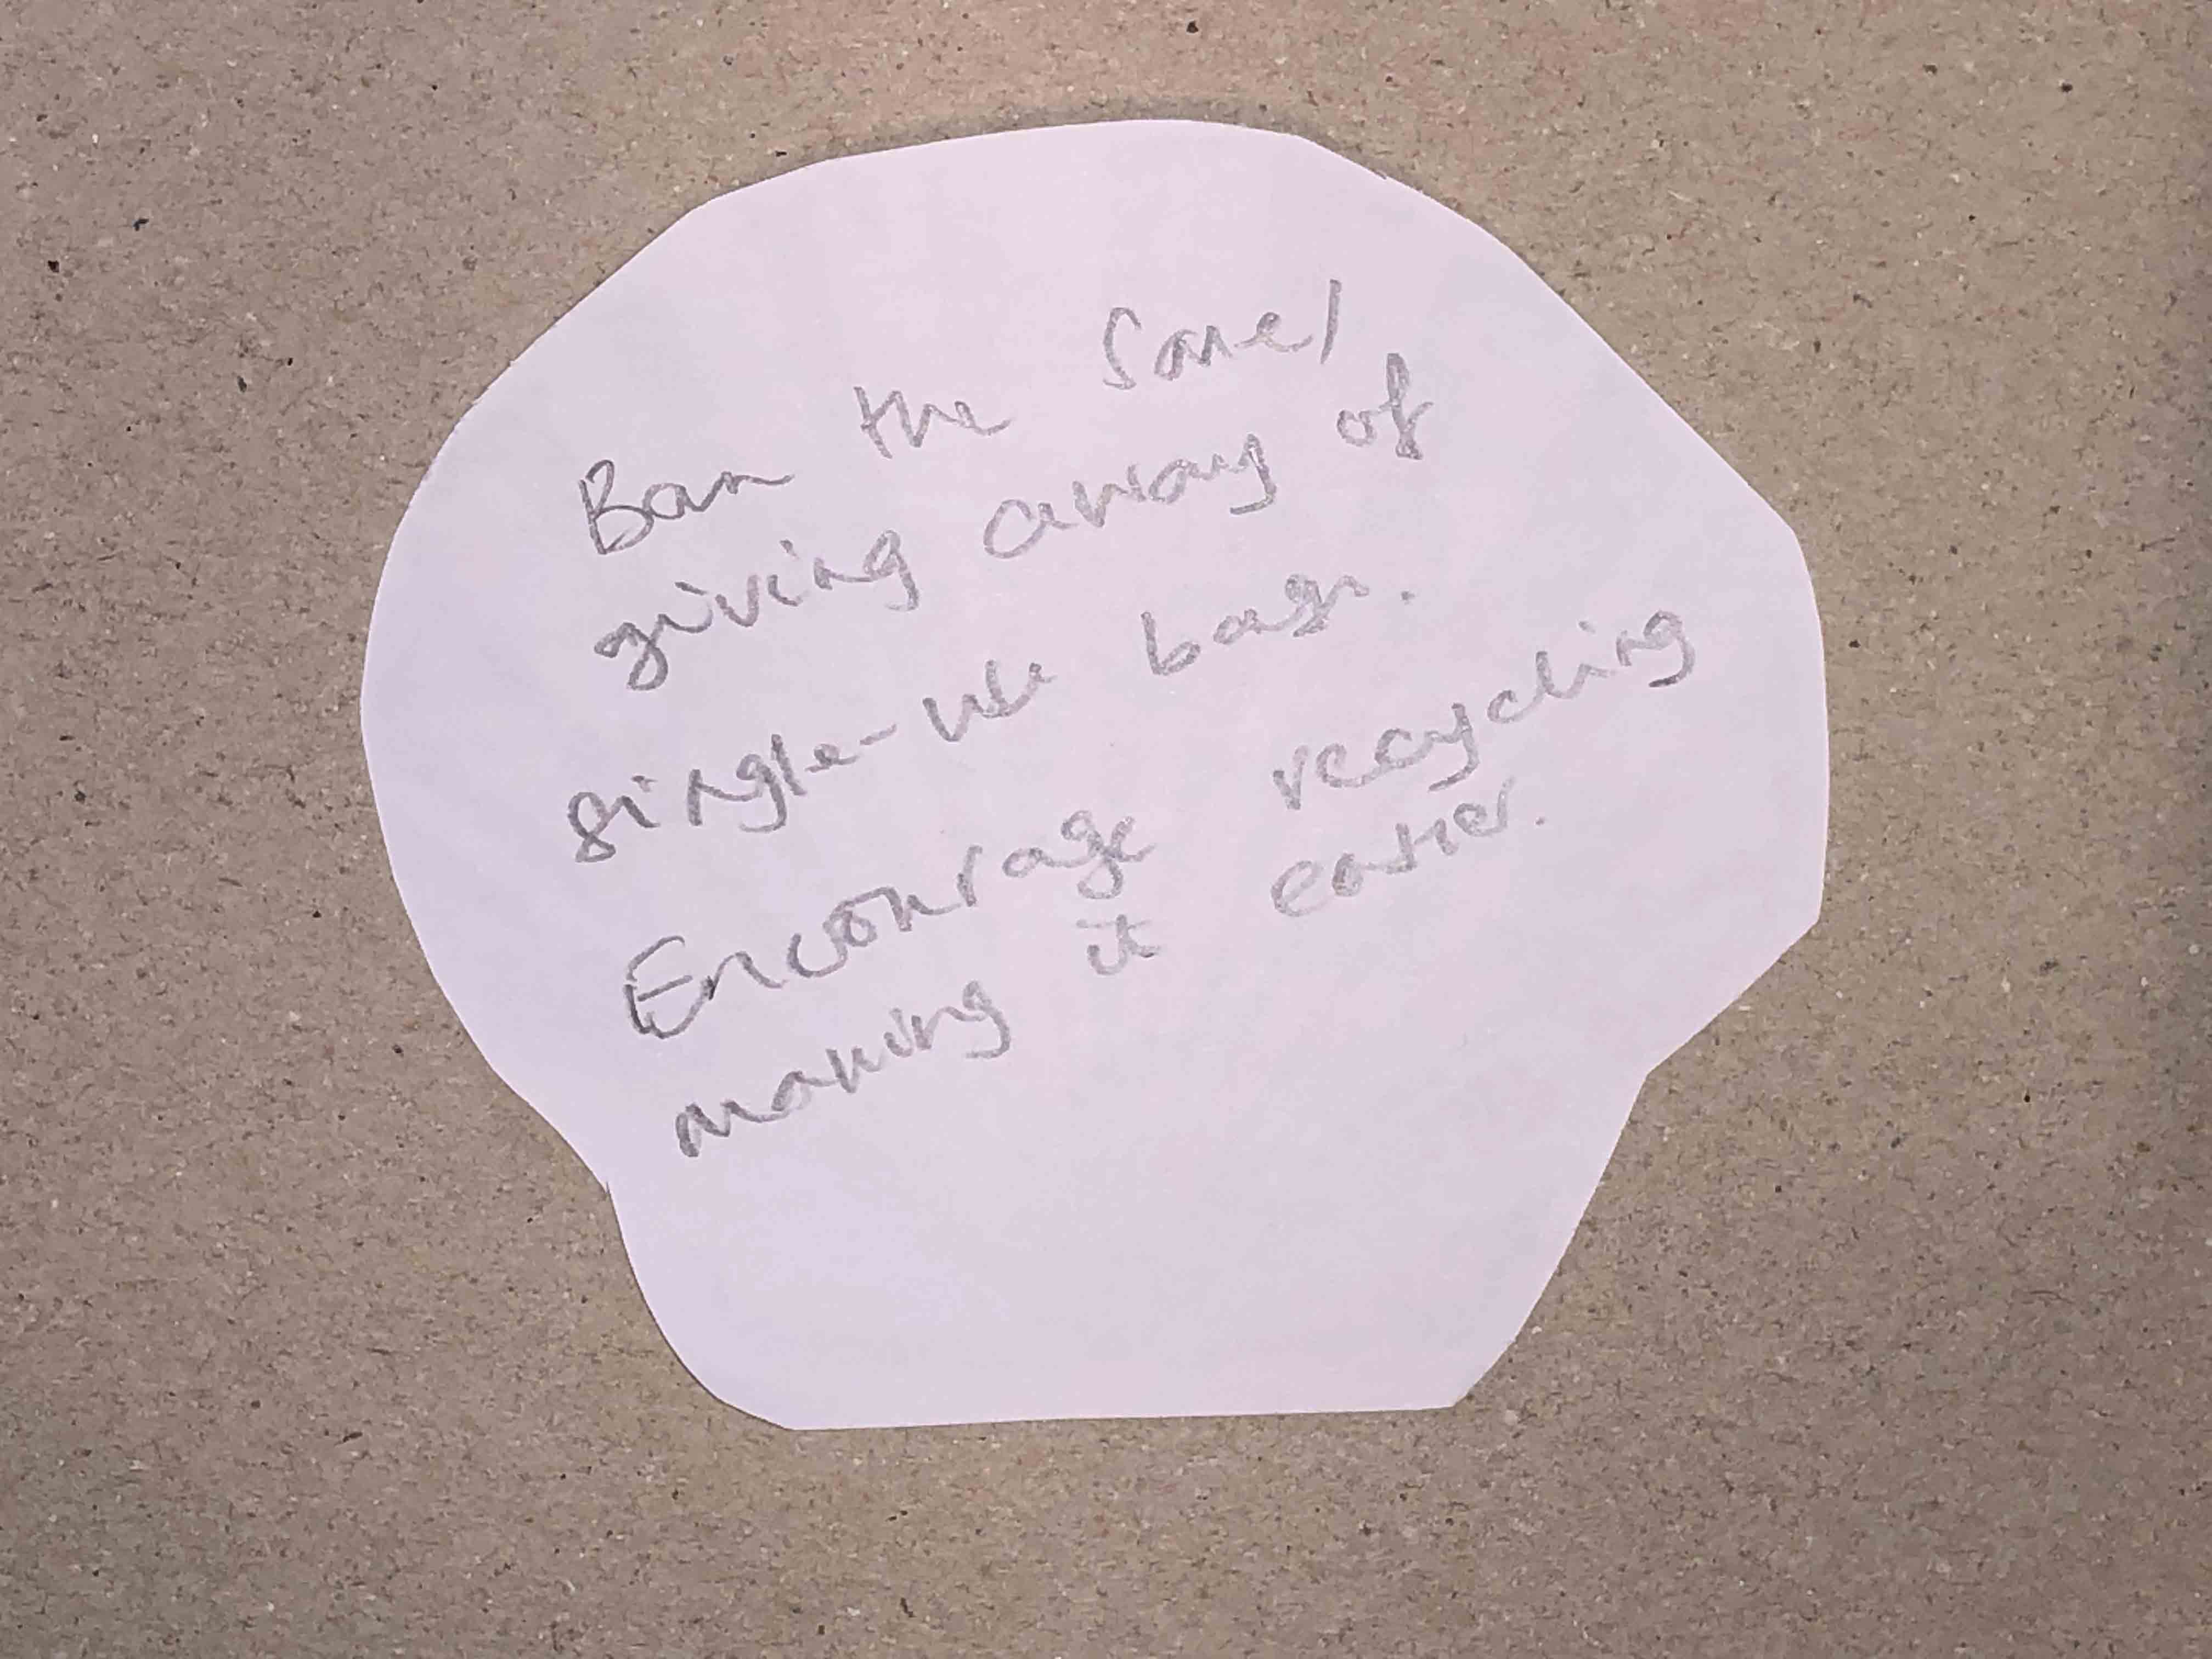 Ban the sale/
giving away of
single-use bags.
Encourage recycling
making it easier.